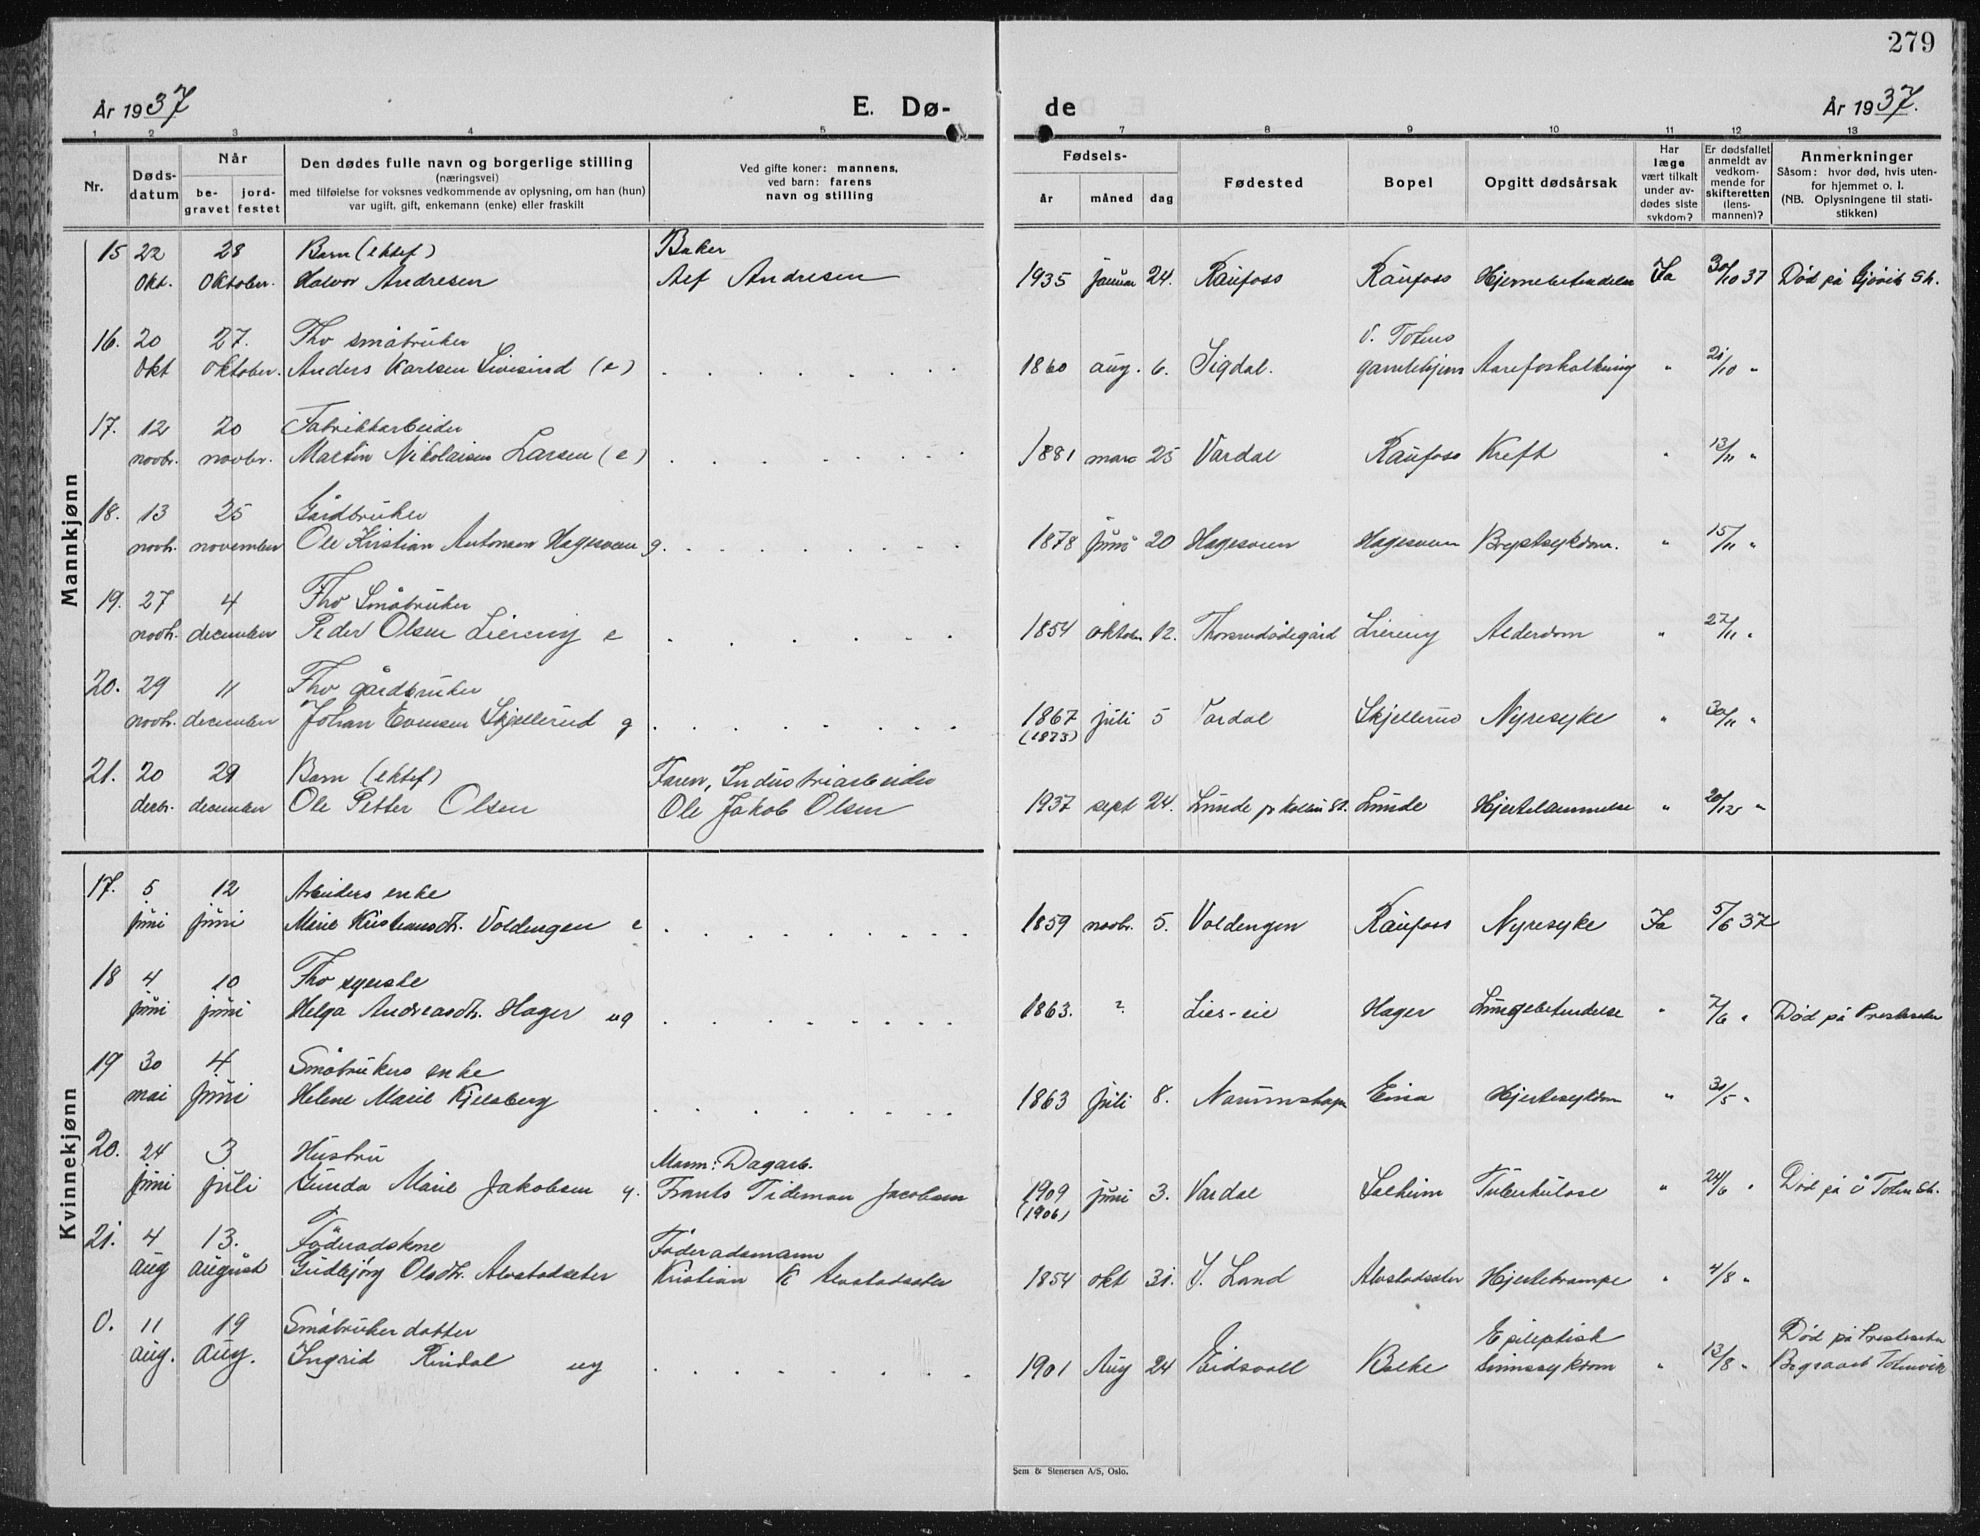 279
År 1937
E. Dø-
de
År 1937.
1 2 3 4 5 7 8 9 10 11 12 13
Nr.
Døds-
datum
Når
be-
gravet
jord-
festet
Den dødes fulle navn og borgerlige stilling
(næringsvei)
med tilføielse for voksnes vedkommende av oplysning, om han (hun)
var ugift, gift, enkemann (enke) eller fraskilt
Ved gifte koner: mannens,
ved barn: farens
navn og stilling
Fødsels-
år
måned
dag
Fødested
Bopel
Opgitt dødsårsak
Har
læge
vært tilkalt
under av-
dødes siste
sykdom?
Er dødsfallet
anmeldt av
vedkom-
mende for
skifteretten
(lens-
mannen)?
Anmerkninger
Såsom: hvor død, hvis uten-
for hjemmet o. l.
(NB. Oplysningene til stati-
stikken)
Mannkjønn
15 22 28 Barn (ektef) Baker
okt. oktober. Halvor Andresen Alf Andresen 1935 januar 24. Raufoss Raufoss Hjernebetendelse Ja 30/10 37 Død på Gjøvik Sh.
16. 20 27. Fhv småbruker V. Totens
okt oktober. Anders Karlsen (e) 1860 aug. 6. Sigdal. gamlehjem Aareforkalkning " 21/10 "
17. 12 20 Fabrikkarbeider
novbr. novbr. Martin Nikolaisen Larsen (e) 1881 mars 25 Vardal Raufoss Kreft " 13/11 "
18. 13 25 Gårdbruker
novbr. november Ole Kristian Antonsen Hagesveen g. 1878 juni 20 Hagesveen Hagesveen Brystsykdom. " 15/11 "
19. 27 4 Fhv Småbruker
novbr. december Peder Olsen Liereng e 1854 oktober 12. Thorsrudødegård Liereng Alderdom " 27/11 "
20. 29 11 Fhv gårdbruker
novbr. december Johan Evensen Skjellerud g 1867 juli 5 Vardal Skjellerud Nyresyke " 30/11 "
(1873)
21. 20 29 Barn (ektef) Faren, Industriarbeider
decbr. december Ole Petter Olsen Ole Jakob Olsen 1937 sept 24. Lunde pr Kolbu St. Lunde Hjertelammelse " 20/12 "
Kvinnekjønn
17. 5 12 Arbeiders enke
juni juni Marie Kristiansdtr. Voldengen e 1859 novbr. 5. Voldengen Raufoss Nyresyke Ja 5/6 37
18 4 10 Fhv syerske
juni juni Helga Andreasdtr. Hager ug 1863. ? Lies-eie Hager Lungebetendelse " 7/6 " Død på Presteseter
19 30 4 Småbrukers enke
mai juni Helene Marie Kjelsberg 1863 juli 8. Eina Hjertesykdom " 30/5 "
20. 24 3 Hustru Mann: Dagarb.
juni juli Gunda Marie Jakobsen g. Frants Tideman Jacobsen 1909 juni 3. Vardal Solheim Tuberkulose " 24/6 " Død på Ø Toten Sh.
(1906)
21. 4 13. Føderådskone Føderådsmann
aug august Gudbjørg Olsdtr. Alvstadseter Kristian K Alvstadseter 1854 okt 31. S. Land Alvstadseter Hjertekrampe " 4/8 "
0. 11 19 Småbruker datter Epileptisk Død på Presteseter
aug. Aug. Ingrid Rindal ug 1901 Aug 24 Eidsvoll Balke Sinnssykdom " 13/8 " Begravet Totenvik
Sem & Stenersen A/S, Oslo.